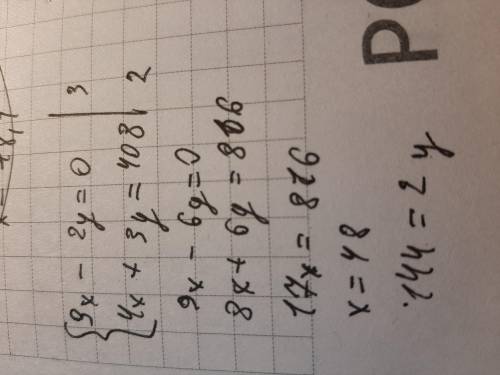 3x - 2y = 0 | 3
4x + 3y = 408 | 2
9x - 6y = 0
8x + 6y = 816
17x = 816
x = 48
144 = 2y